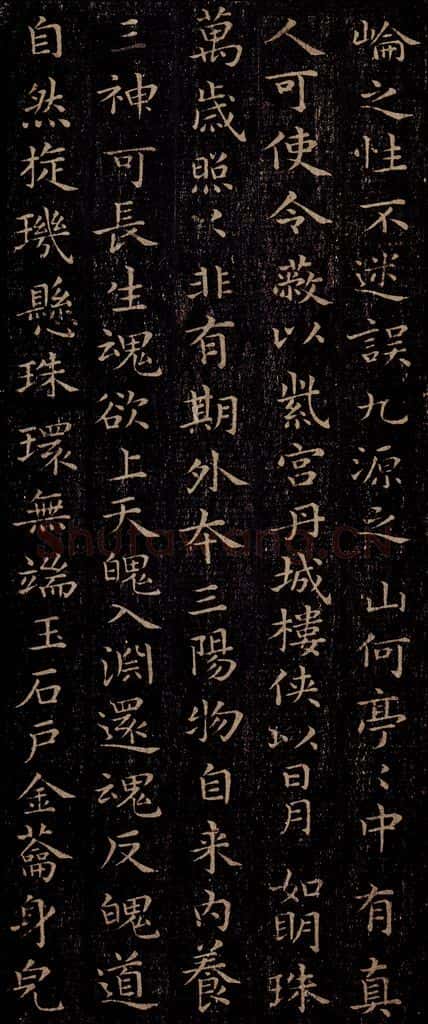 崘之性不迷誤九源之山何亭〻中有真
人可使令蔽以紫宮丹城樓侠以日月如明珠
萬歲照〻非有期外夲三陽物自来内養
三神可長生魂欲上天魄入淵還魂反魄道
自然㧞璣懸珠環無端玉石户金籥身皃
Shufawang.CN